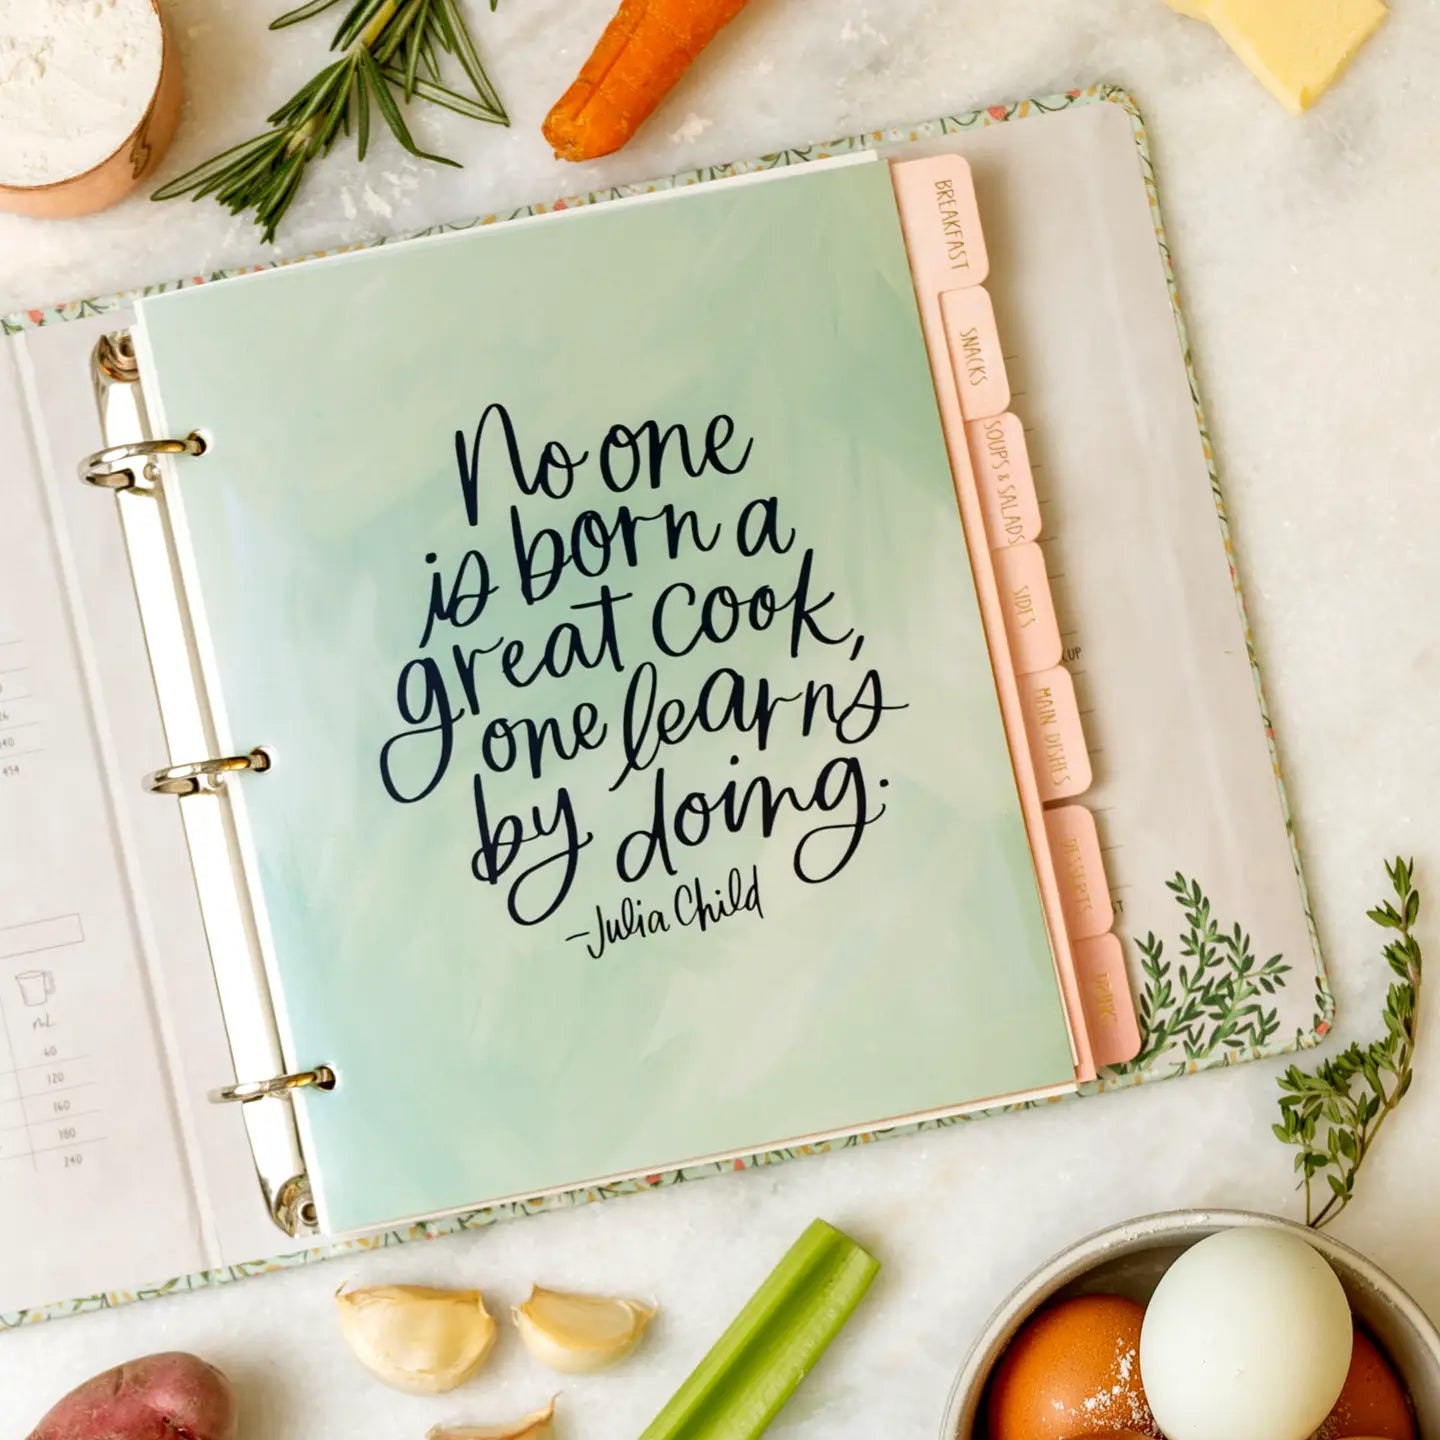 No one
is born a
great cook,
one learns
by doing.
-Julia Child
BREAKFAST
SNACKS
SOUPS & SALADS
SIDES
MAIN DISHES
DESSERTS
DRINKS
CUP
454
mL
60
120
160
180
240